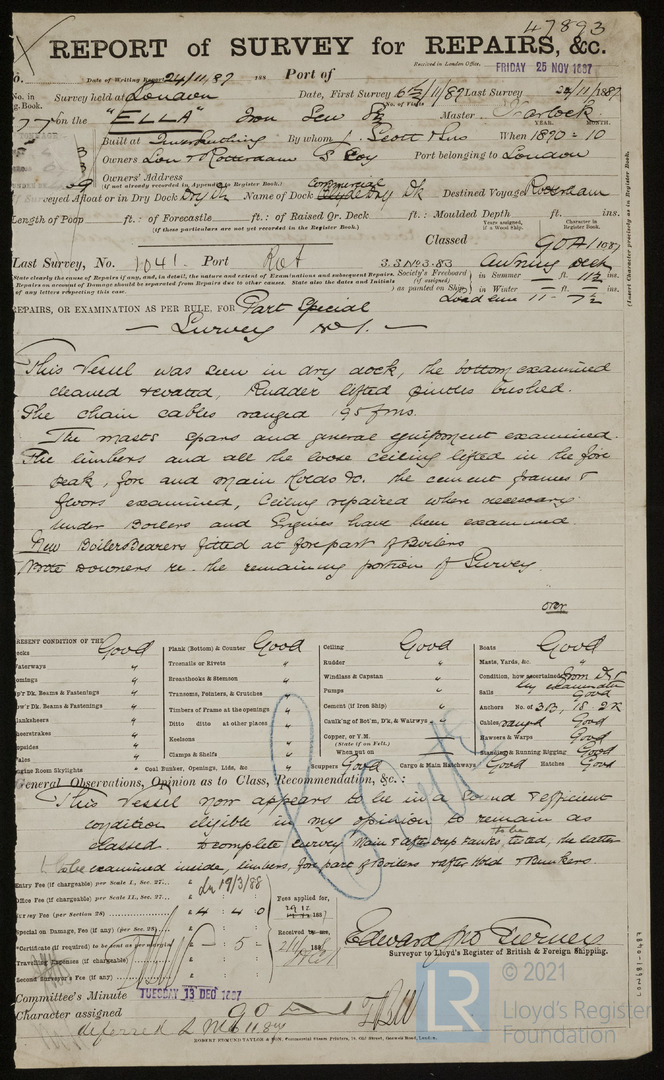 47893
REPORT of SURVEY for REPAIRS, &c.
Received in London Office, FRIDAY 25 NOV 1887
Date of Writing Report 24/11/87 188 Port of
No. in Survey held at London Date, First Survey Last Survey 1887
Reg. Book. No. of Visits
77 on the "ELLA" Iron Master Harlock
YEAR. MONTH.
Built at Inverkeithing By whom J. Scott & Sns When 1890 = 10
Owners Lon & Rotterdam S Coy Port belonging to London
Owners' Address
(if not already recorded in Appendix to Register Book.)
Commercial
If Surveyed Afloat or in Dry Dock Dry Dk Name of Dock Dry Dk Destined Voyage Rotterdam
Length of Poop ft.: of Forecastle ft.: of Raised Qr. Deck ft.: Moulded Depth ft. ins.
(if these particulars are not yet recorded in the Register Book.)
Years assigned, if a Wood Ship. Character in Register Book.
Classed 90A1 1087
Last Survey, No. 1041 Port Rot 3.S No 3.83 Awning Deck
State clearly the cause of Repairs if any, and, in detail, the nature and extent of Examinations and subsequent Repairs.
Repairs on account of Damage should be separated from Repairs due to other causes. State also the dates and Initials
of any letters respecting this case.
Society's Freeboard (if assigned) as painted on Ship
in Summer — ft. 11½ ins.
in Winter — ft. — ins.
Load line 11 - 7½
(Insert Character precisely as in Register Book.
REPAIRS, OR EXAMINATION AS PER RULE, FOR Part Special
— Survey No 1. —
This Vessel was seen in dry dock, the bottom examined
cleaned & coated, Rudder lifted pintles bushed.
The chain cables ranged 195 fms.
The masts spars and general equipment examined.
The limbers and all the loose ceiling lifted in the fore
peak, fore and main Holds &c. the cement frames &
floors examined, Ceiling repaired where necessary.
under Boilers and Engines have been examined
New Boiler Bearers fitted at fore part of Boilers
Wrote Owners re. the remaining portion of Survey.
over
PRESENT CONDITION OF THE
Decks Good
Waterways "
Comings "
Up'r Dk. Beams & Fastenings "
Low'r Dk. Beams & Fastenings "
Planksheers "
Sheerstrakes "
Topsides "
Wales "
Engine Room Skylights "
Plank (Bottom) & Counter Good
Treenails or Rivets "
Breasthooks & Stemson "
Transoms, Pointers, & Crutches "
Timbers of Frame at the openings "
Ditto ditto at other places "
Keelsons "
Clamps & Shelfs "
Coal Bunker, Openings, Lids, &c "
Ceiling Good
Rudder "
Windlass & Capstan "
Pumps "
Cement (if Iron Ship) "
Caulk'ng of Bot'm, D'k, & Waterw'ys "
Copper, or Y.M. —
(State if on Felt.)
When put on —
Scuppers Good Cargo & Main Hatchways Good
Boats Good
Masts, Yards, &c. "
Condition, how ascertained from Dk
by examination
Sails Good
Anchors No. of 3B, 1S, 2K
Cables ranged Good
Hawsers & Warps Good
Standing & Running Rigging Good
Hatches Good
General Observations, Opinion as to Class, Recommendation, &c.:
This Vessel now appears to be in a sound & efficient
condition eligible in my opinion to remain as
classed. To complete survey Main & after Deep Tanks, to be tested, the latter
to be examined inside, limbers, fore part of Boilers & after Hold & Bunkers.
Entry Fee (if chargeable) per Scale I., Sec. 27... £
Office Fee (if chargeable) per Scale II., Sec. 27... £
Survey Fee (per Section 28) £ 4 : 4 : 0
Special on Damage, Fee (if any) (per Sec. 28) £
*Certificate (if required) to be sent as per margin £ - 5 -
Travelling Expenses (if chargeable) £
Second Surveyor's Fee (if any) £
19/3/88
Fees applied for,
1887
Received by me,
188
Edward Wm Tierney
Surveyor to Lloyd's Register of British & Foreign Shipping.
Committee's Minute TUESDAY 13 DEC 1887
Character assigned 90
deferred
ROBERT EDMUND TAYLOR & SON, Commercial Steam Printers, 19, Old Street, Goswell Road, London.
LON681-0487
LR © 2021
Lloyd's Register
Foundation